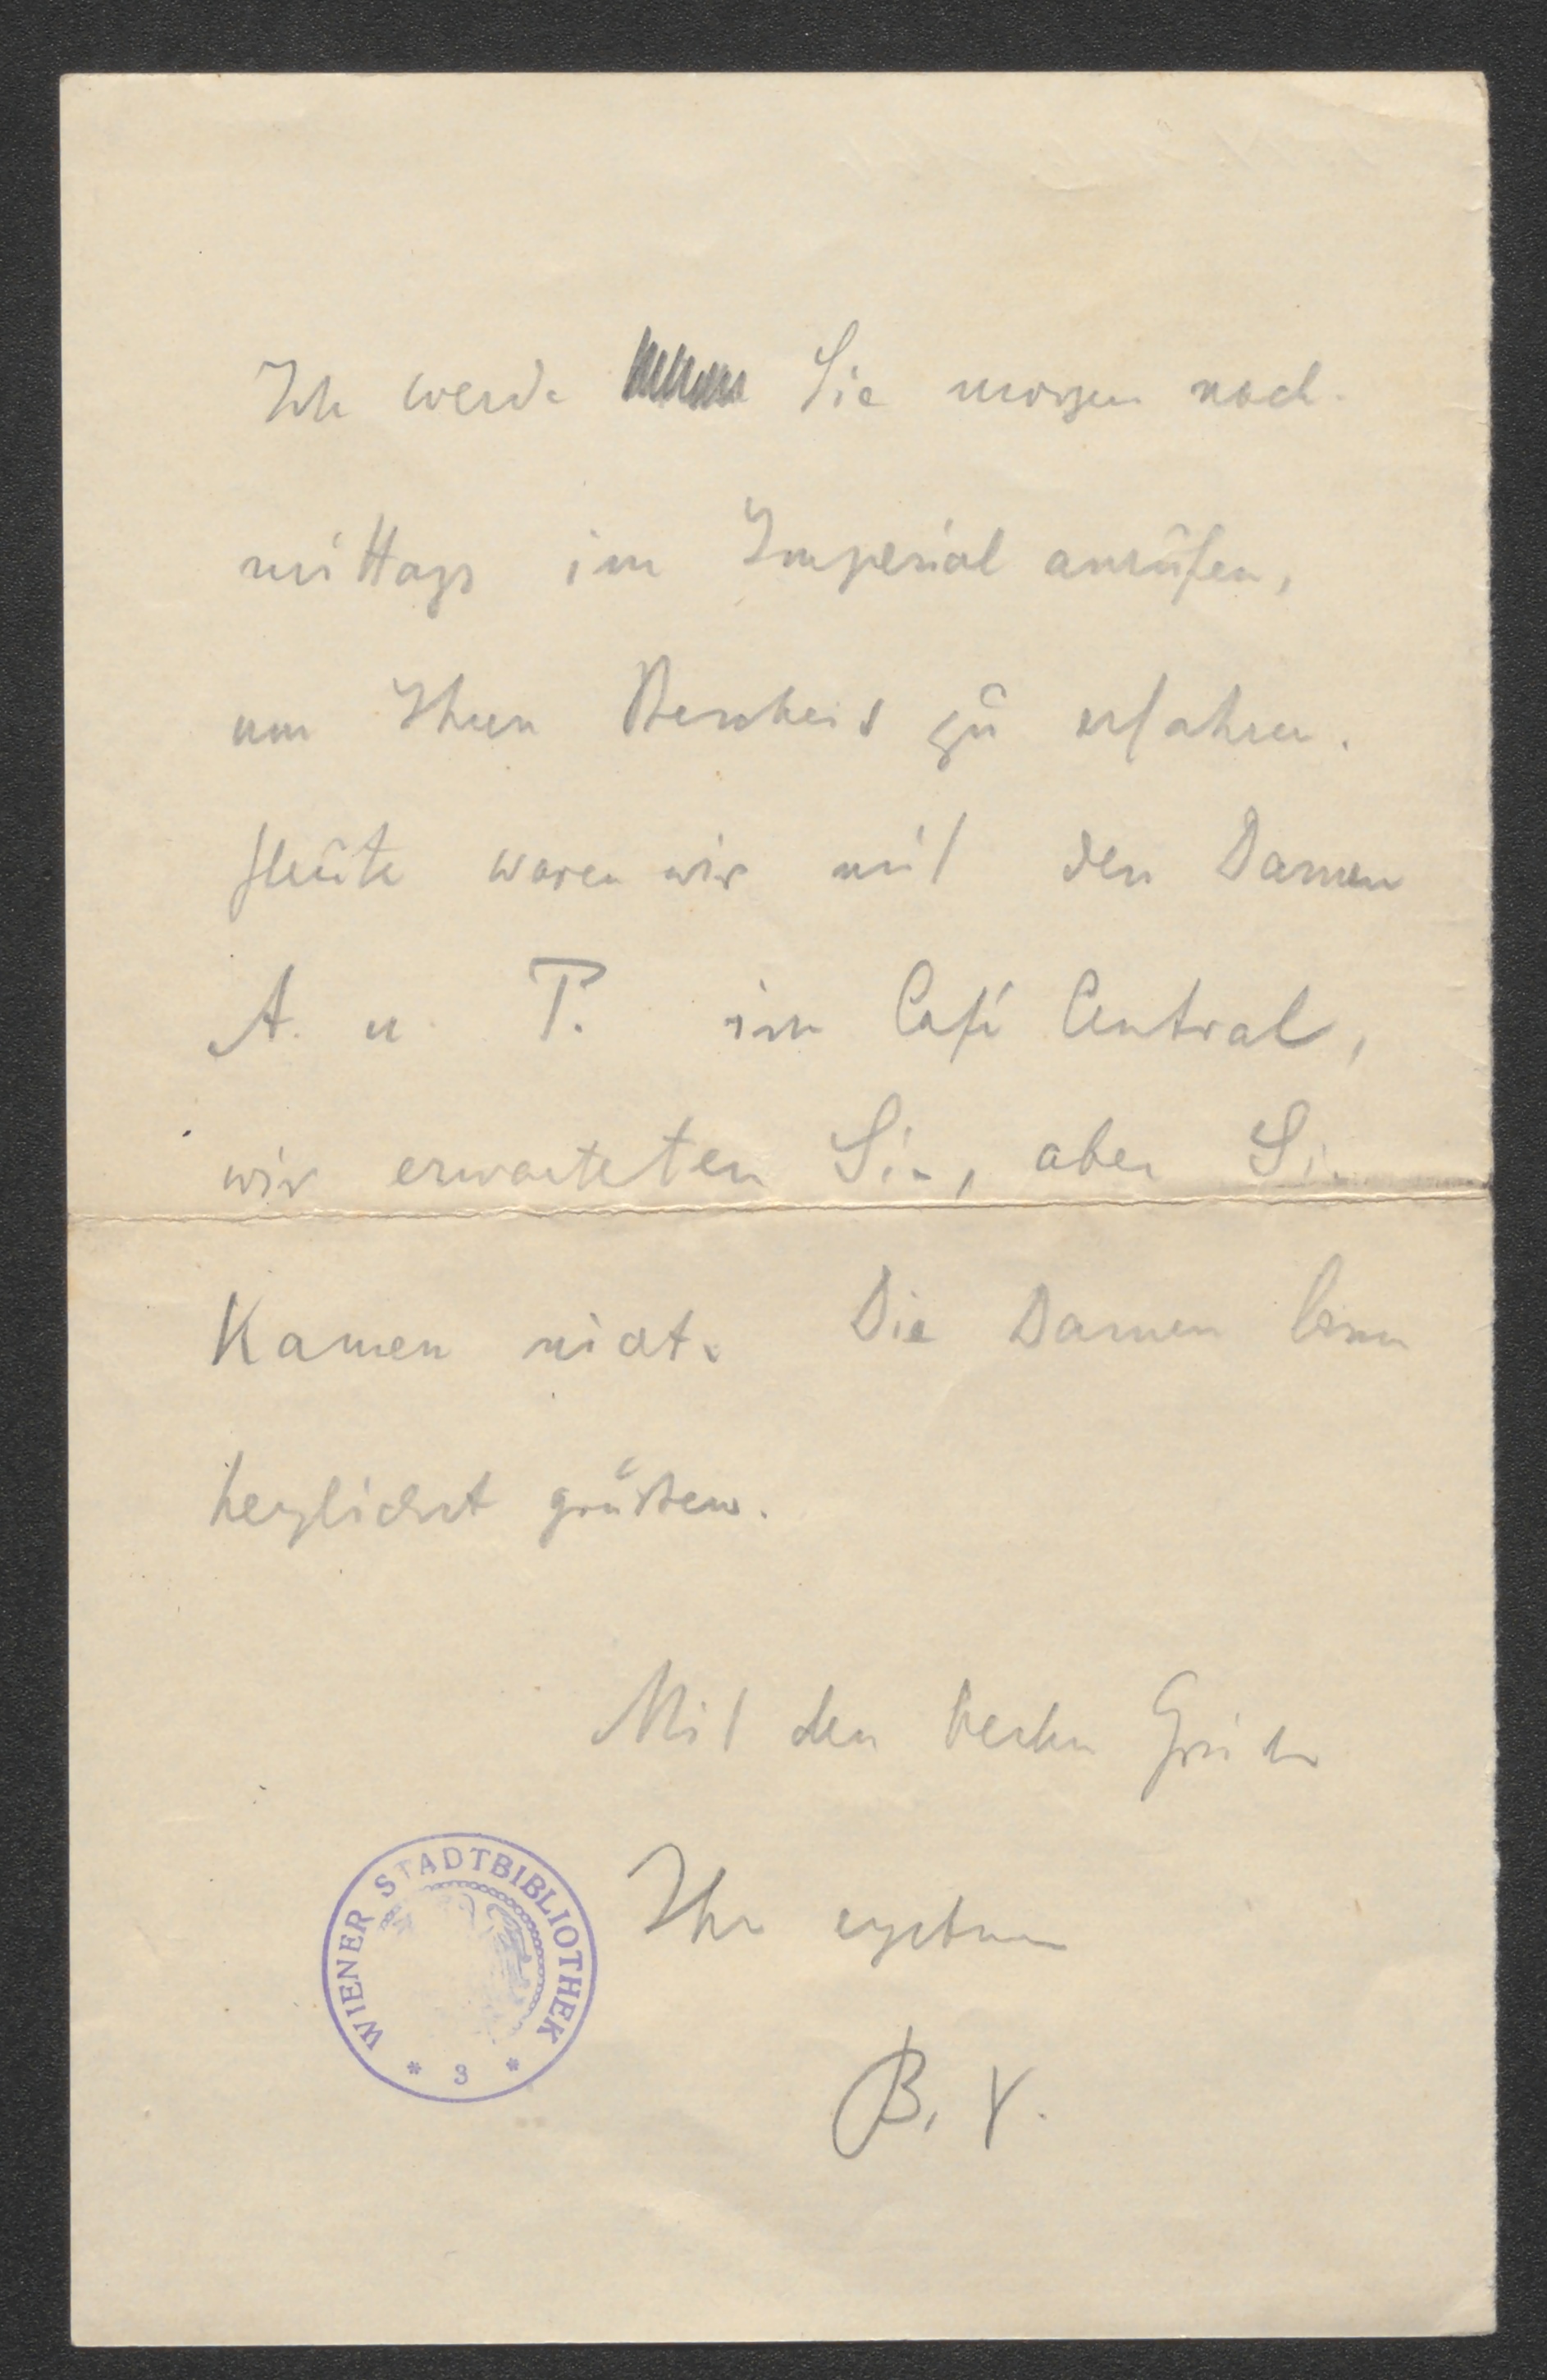 Ich werde Sie morgen nach-
mittags im Imperial anrufen,
um Ihren Bescheid zu erfahren.
Heute waren wir mit den Damen
A. u. P. im Café Central,
wir erwarteten Sie, aber Sie
kamen nicht. Die Damen lassen
herzlichst grüßen.
Mit den besten Grüßen
Ihr ergebener
B. V.
WIENER STADTBIBLIOTHEK
* 3 *